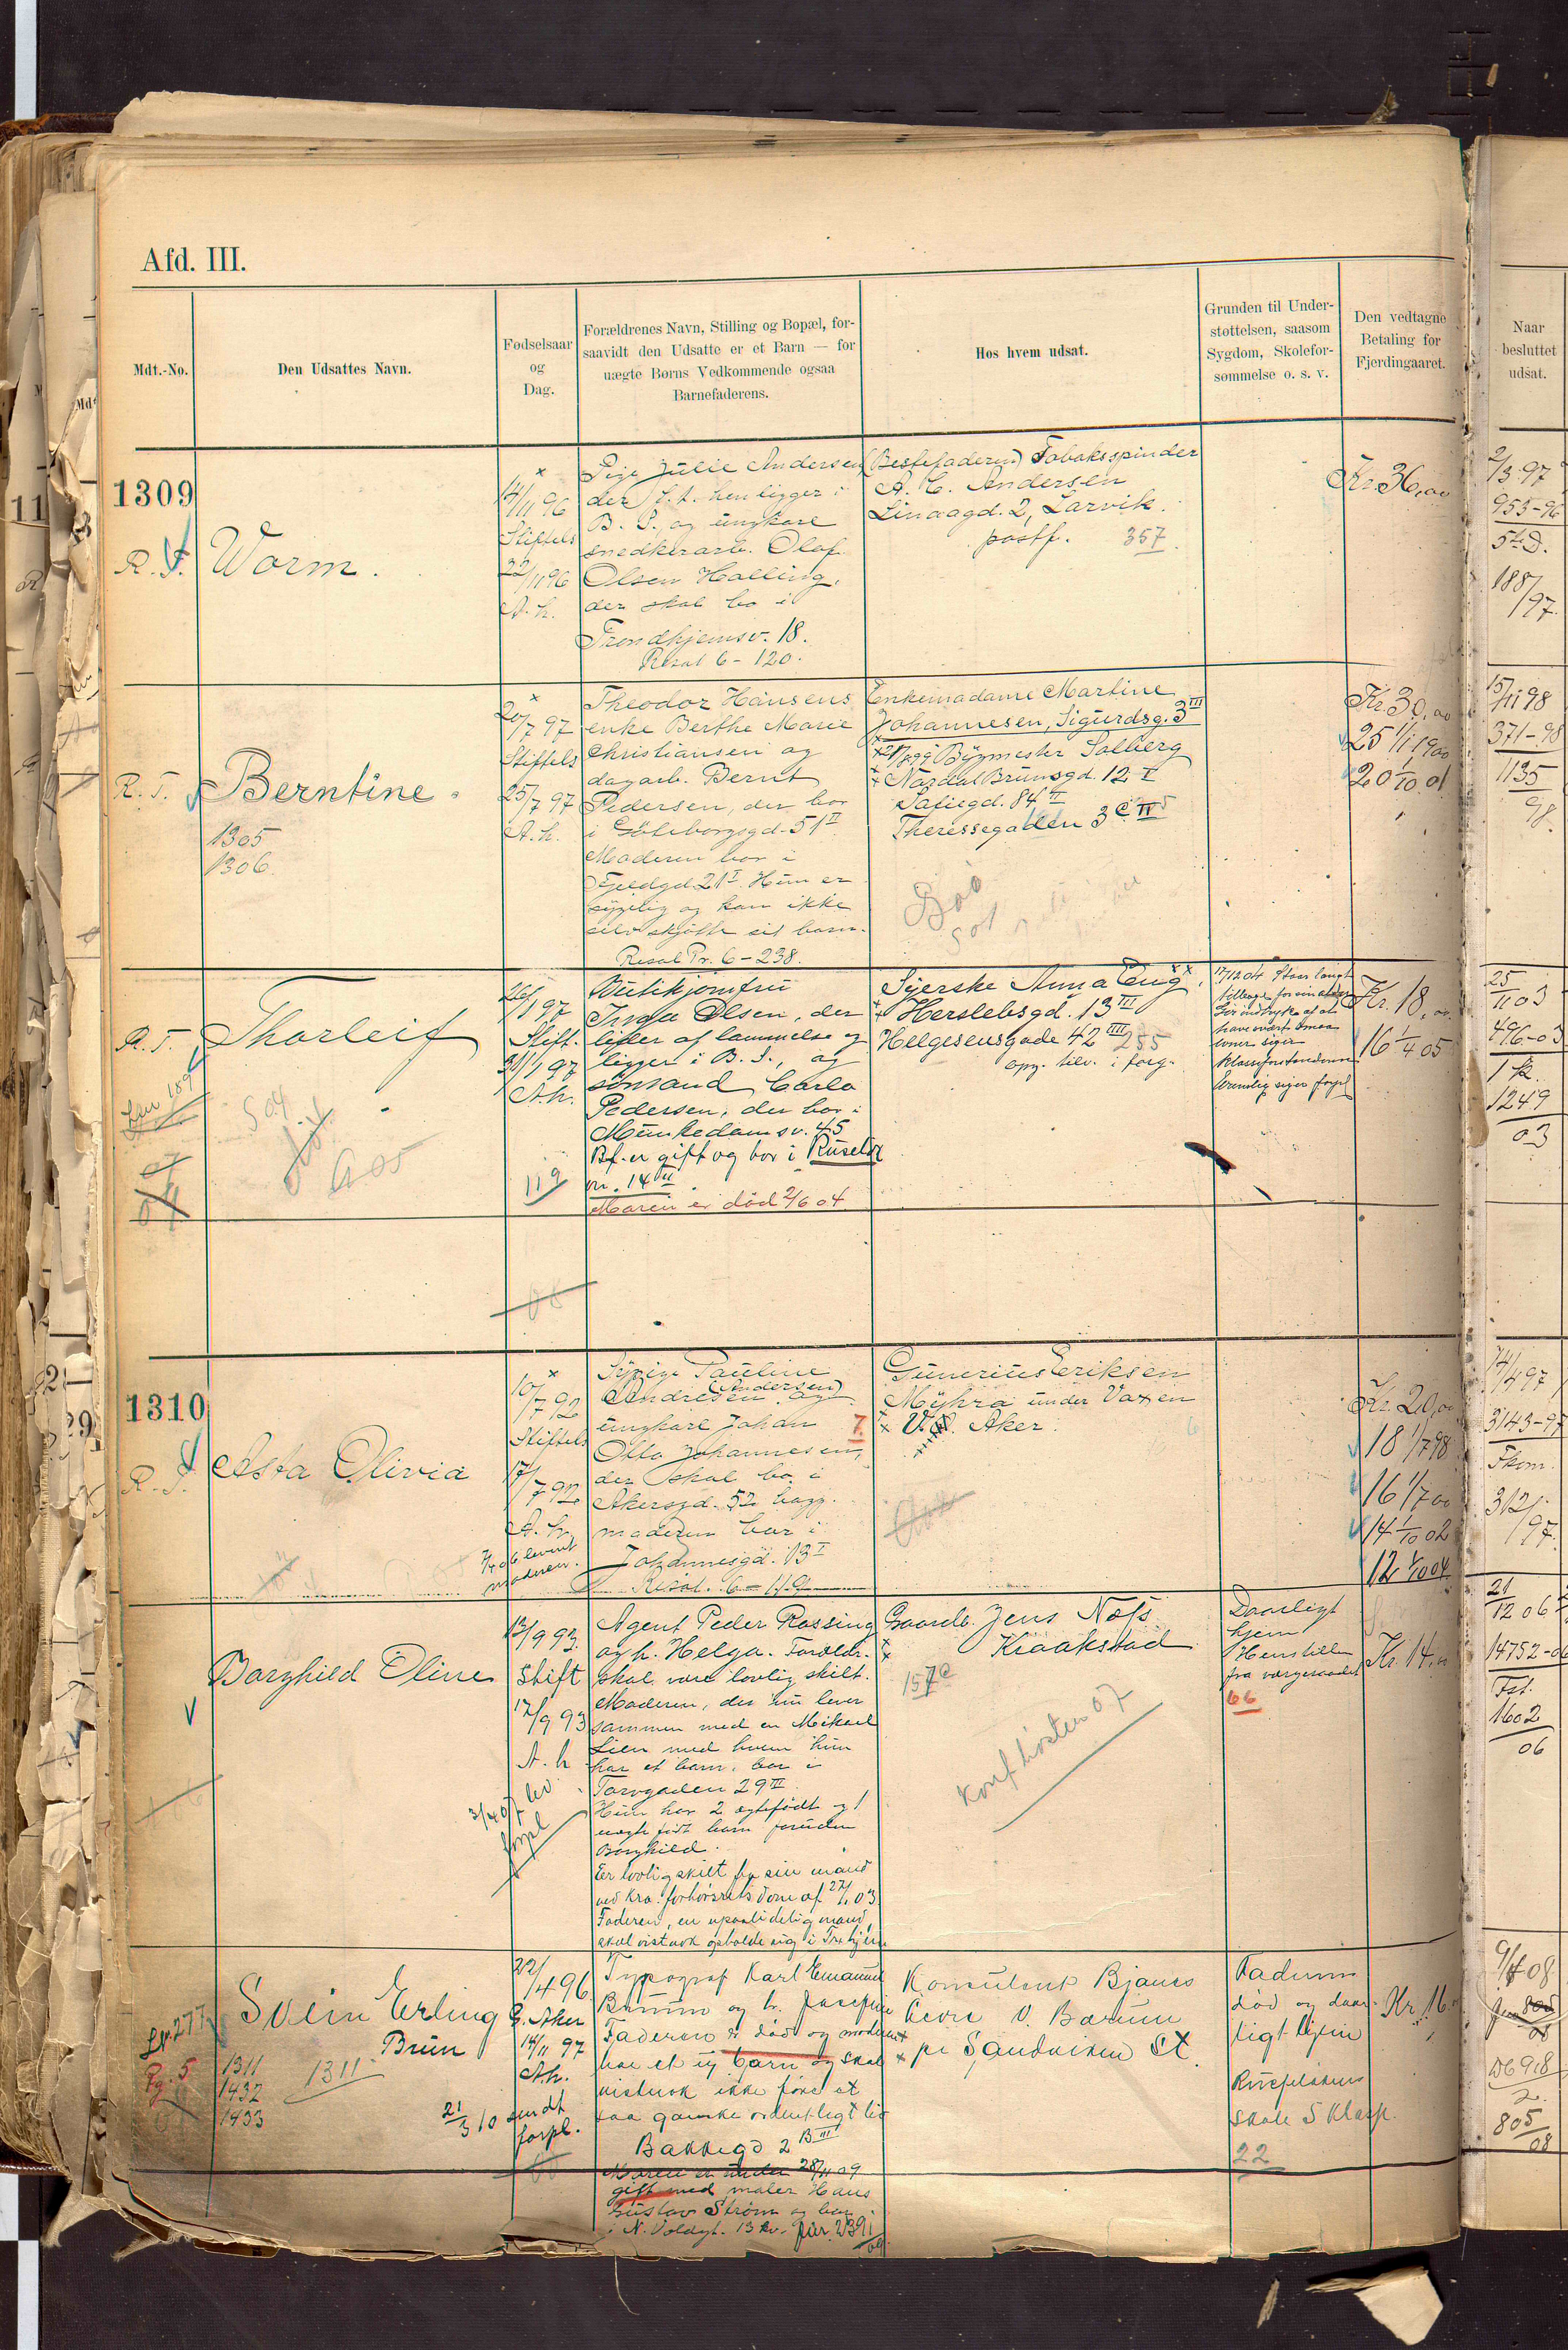 Afd. III.
Mdt.-No.
Den Udsattes Navn.
Fødselsaar
og
Dag.
Forældrenes Navn, Stilling og Bopæl, for-
saavidt den Udsatte er et Barn — for
uægte Børns Vedkommende ogsaa
Barnefaderens.
Hos hvem udsat.
Grunden til Under-
støttelsen, saasom
Sygdom, Skolefor-
sømmelse o. s. v.
Den vedtagne
Betaling for
Fjerdingaaret.
Naar
besluttet
udsat.
1309
R. T.
Worm.
14/11 96
Stiftels
22/11 96
A. h.
Pige Julie Andersen
der f. t. henligger i
B. S. og ungkare
snedkerarb. Olaf
Olsen Halling,
der skal bo i
Trondhjemsv. 18.
Resol 6 - 120.
(Bestefaderen) Tobaksspinder
A. C. Andersen
Linaagd. 2, Larvik.
postf. 357
Kr. 36,00
2/3 97
953-96
5te D.
188/97
R. T.
Berntine.
1305
1306
20/7 97
Stiftels
25/7 97
A. h.
Theodor Hansens
enke Berthe Marie
Christiansen og
dagarb. Bernt
Pedersen, der bor
i Göteborgsgd. 51 II
Moderen bor i
Fjeldgd. 21 I. Hun er
sygelig og kan ikke
selv skjøtte sit barn.
Resol Pr. 6 - 238.
Enkemadame Martine
Johannesen, Sigurdsg. 3 III
Bygmester Solberg
Nordal Brunsgd. 12 I
Sofiegd. 84 II
Theressegaden 3 c II
Kr. 30,00
25 1/1 1900
20 1/10 01
15/11 98
371-98
1135
98
R. T.
Thorleif
504
A 05
26/1 97
Stift.
31/1 97
A. h.
119
Butikjomfru
Inga Olsen, der
lider af lammelse og
ligger i B. S., og
sömand Carlo
Pedersen, der bor i
Munkedamsv. 45
Bf. er gift og bor i Ruseløk
nr. 14 III
Moren er død 2/6 04
Syerske Anna Eng
Herslebsgd. 13 III
Helgesensgade 42 IIII 255
opg. tilv. i forg.
17/12 04 Staar langt
tilbage for sin alder
Gir indtryk af at
have været
siger
Klasseforstanderen
siger forpl.
Kr. 18,00
16 1/4 05
25/11 03
496-03
1 k.
1249
03
1310
R. T.
Asta Olivia
10/7 92
Stiftels
17/7 92
A. h.
7/4 06 levert
moderen.
Sypige Pauline
(Andersen)
Andresen og
ungkare Johan
Otto Johannesen,
der skal bo i
Akersgd. 52 bagg.
moderen bor i
Johannesgd. 13 I
Resol. 6 - 119
7.
Gunerius Eriksen
Myhra under Voxen
V. Aker.
Kr. 20,00
18 1/7 98
16 1/7 00
14 1/10 02
12 1/10 04
14/4 97
3143-97
Fkom.
312/97
Borghild Oline
13/9 93
Stift
17/9 93
A. h
3/4 07 lev
forpl
Agent Peder Rossing
og h. Helga. Foreldr.
skal være lovlig skilt.
Moderen, der nu lever
sammen med en Mikael
Lien med hvem hun
har et barn, bor i
Torvgaden 29 III
Hun har 2 ægtefødt og 1
uægte født barn foruden
Borghild.
Eer lovlig skilt fra sin mand
ved Kra. forhørsrets dom af 27/1 03.
Faderen, en upaalidelig mand,
skal vistnok opholde sig i Trhjem
Gaardb. Jens Næss
Kraakstad
157 c
Konf høsten 07
Daarligt
hjem
Henstillen
fra værgeraadet
66
Kr. 14,00
21/12 06
14752-06
Fst.
1602
06
Lp. 277
Pg. 5
Svein Erling
Brun
1311
1432
1433
1311
22/4 96
G. Aker
14/11 97
A. h.
21/3 10 sendt
forpl.
Typograf Karl Emanuel
Brunn og h. Josefine
Faderen er død og moderen
har et nyt barn og skal
vistnok ikke føre et
saa ganske ordentligt liv
Bakkegd 2 B III
Moren er under 28/11 09
gift med maler Hans
Gustav Strøm og bor
i N. Voldgt. 13 kv. jür. 2391/09
Konsulent Bjanes
Levre V. Bærum
pr Sandviken St.
Faderen
død og daar-
ligt hjem
Ruseløkkens
skole 5 Klasse.
22
Kr. 16
9/4 08
D6918
2.
805
08